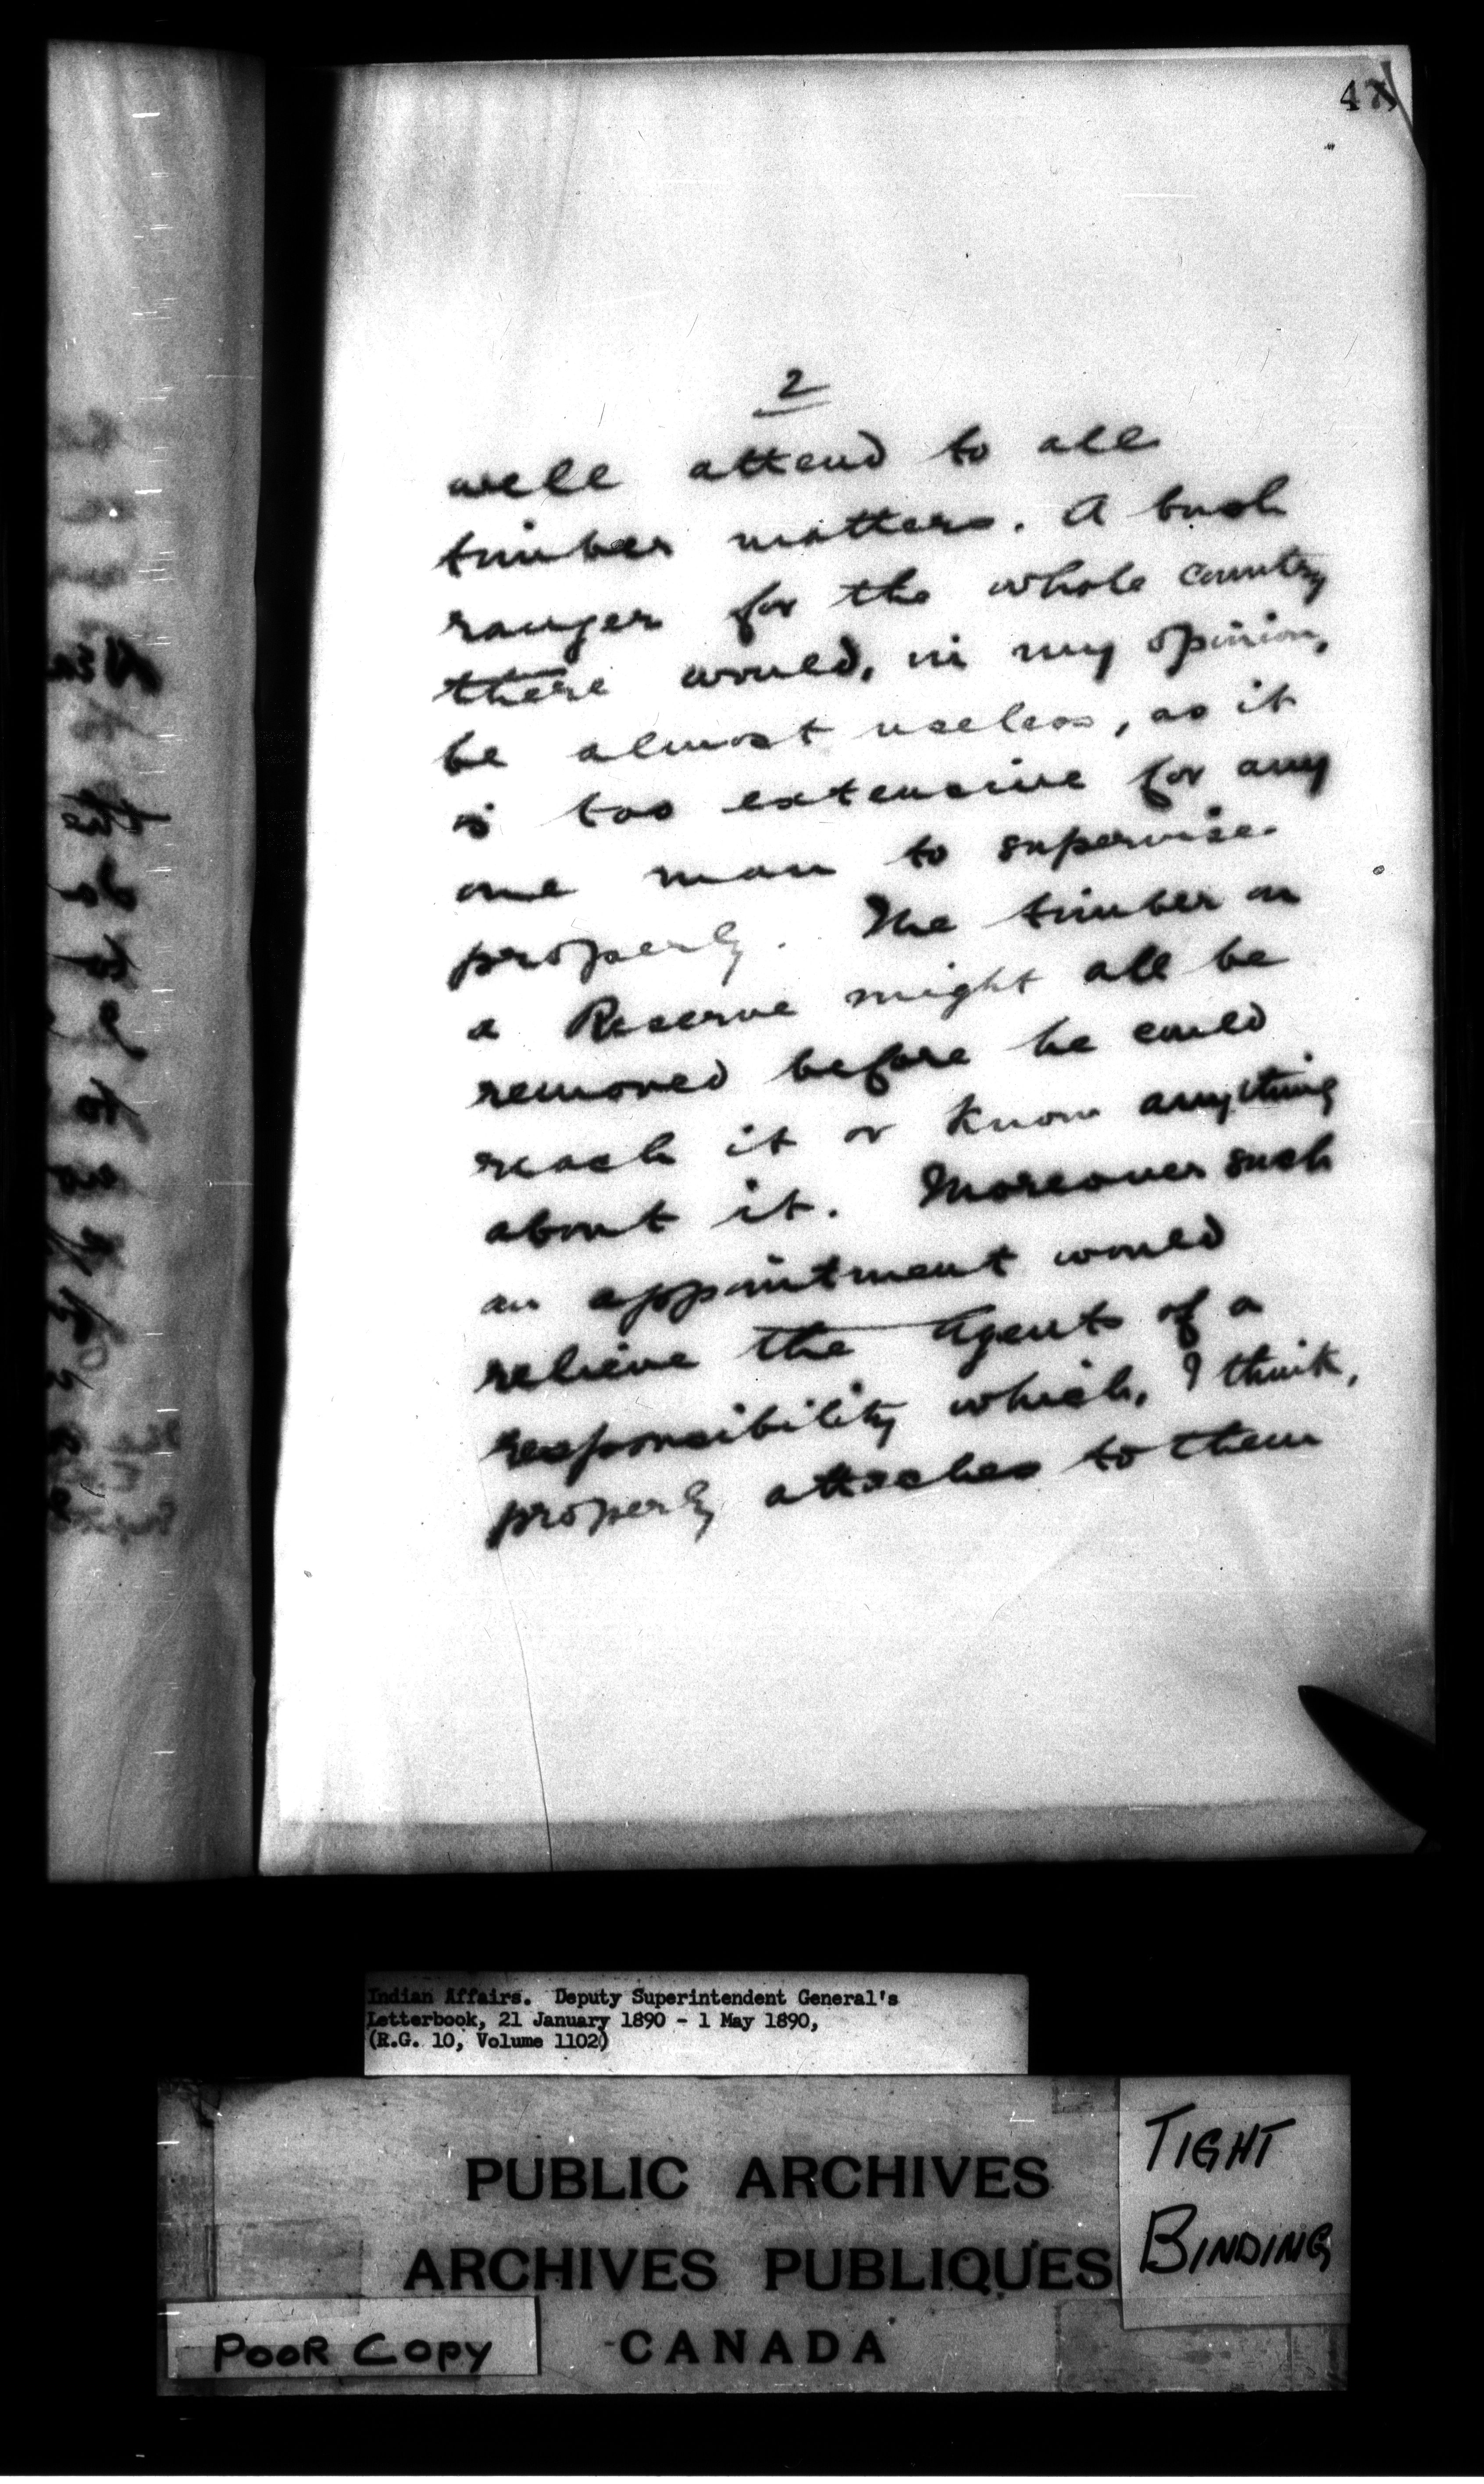 2
well attend to all
timber matters. A bush
ranger for the whole country
there would, in my opinion,
be almost useless, as it
is too extensive for any
one man to supervise
properly. The timber on
a Reserve might all be
removed before he could
reach it or know anything
about it. Moreover such
an appointment would
relieve the Agents of a
responsibility which, I think,
properly attaches to them
Indian Affairs. Deputy Superintendent General's
Letterbook, 21 January 1890 - 1 May 1890,
(R.G. 10, Volume 1102)
PUBLIC ARCHIVES
ARCHIVES PUBLIQUES
CANADA
TIGHT
BINDING
POOR COPY